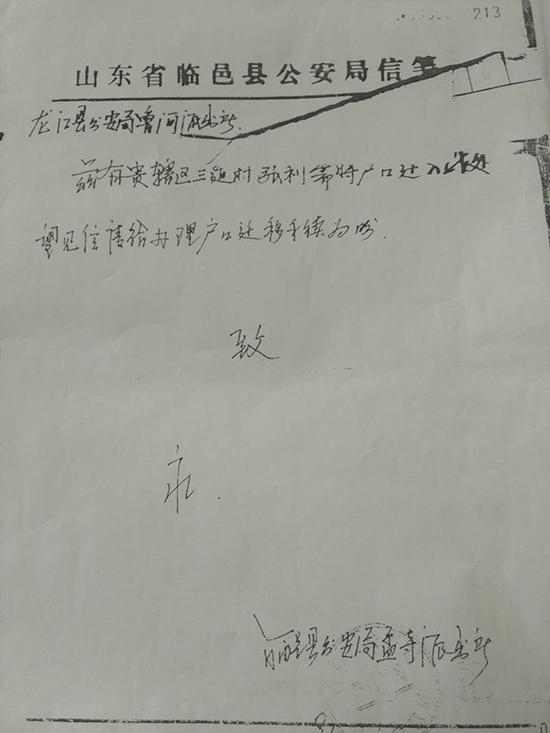 213
山东省临邑县公安局信笺
龙江县公安局鲁河派出所.
兹有贵辖区三通村张利等将户口迁入我处
望见信请给办理户口迁移手续为盼.
致
礼.
临邑县公安局孟寺派出所